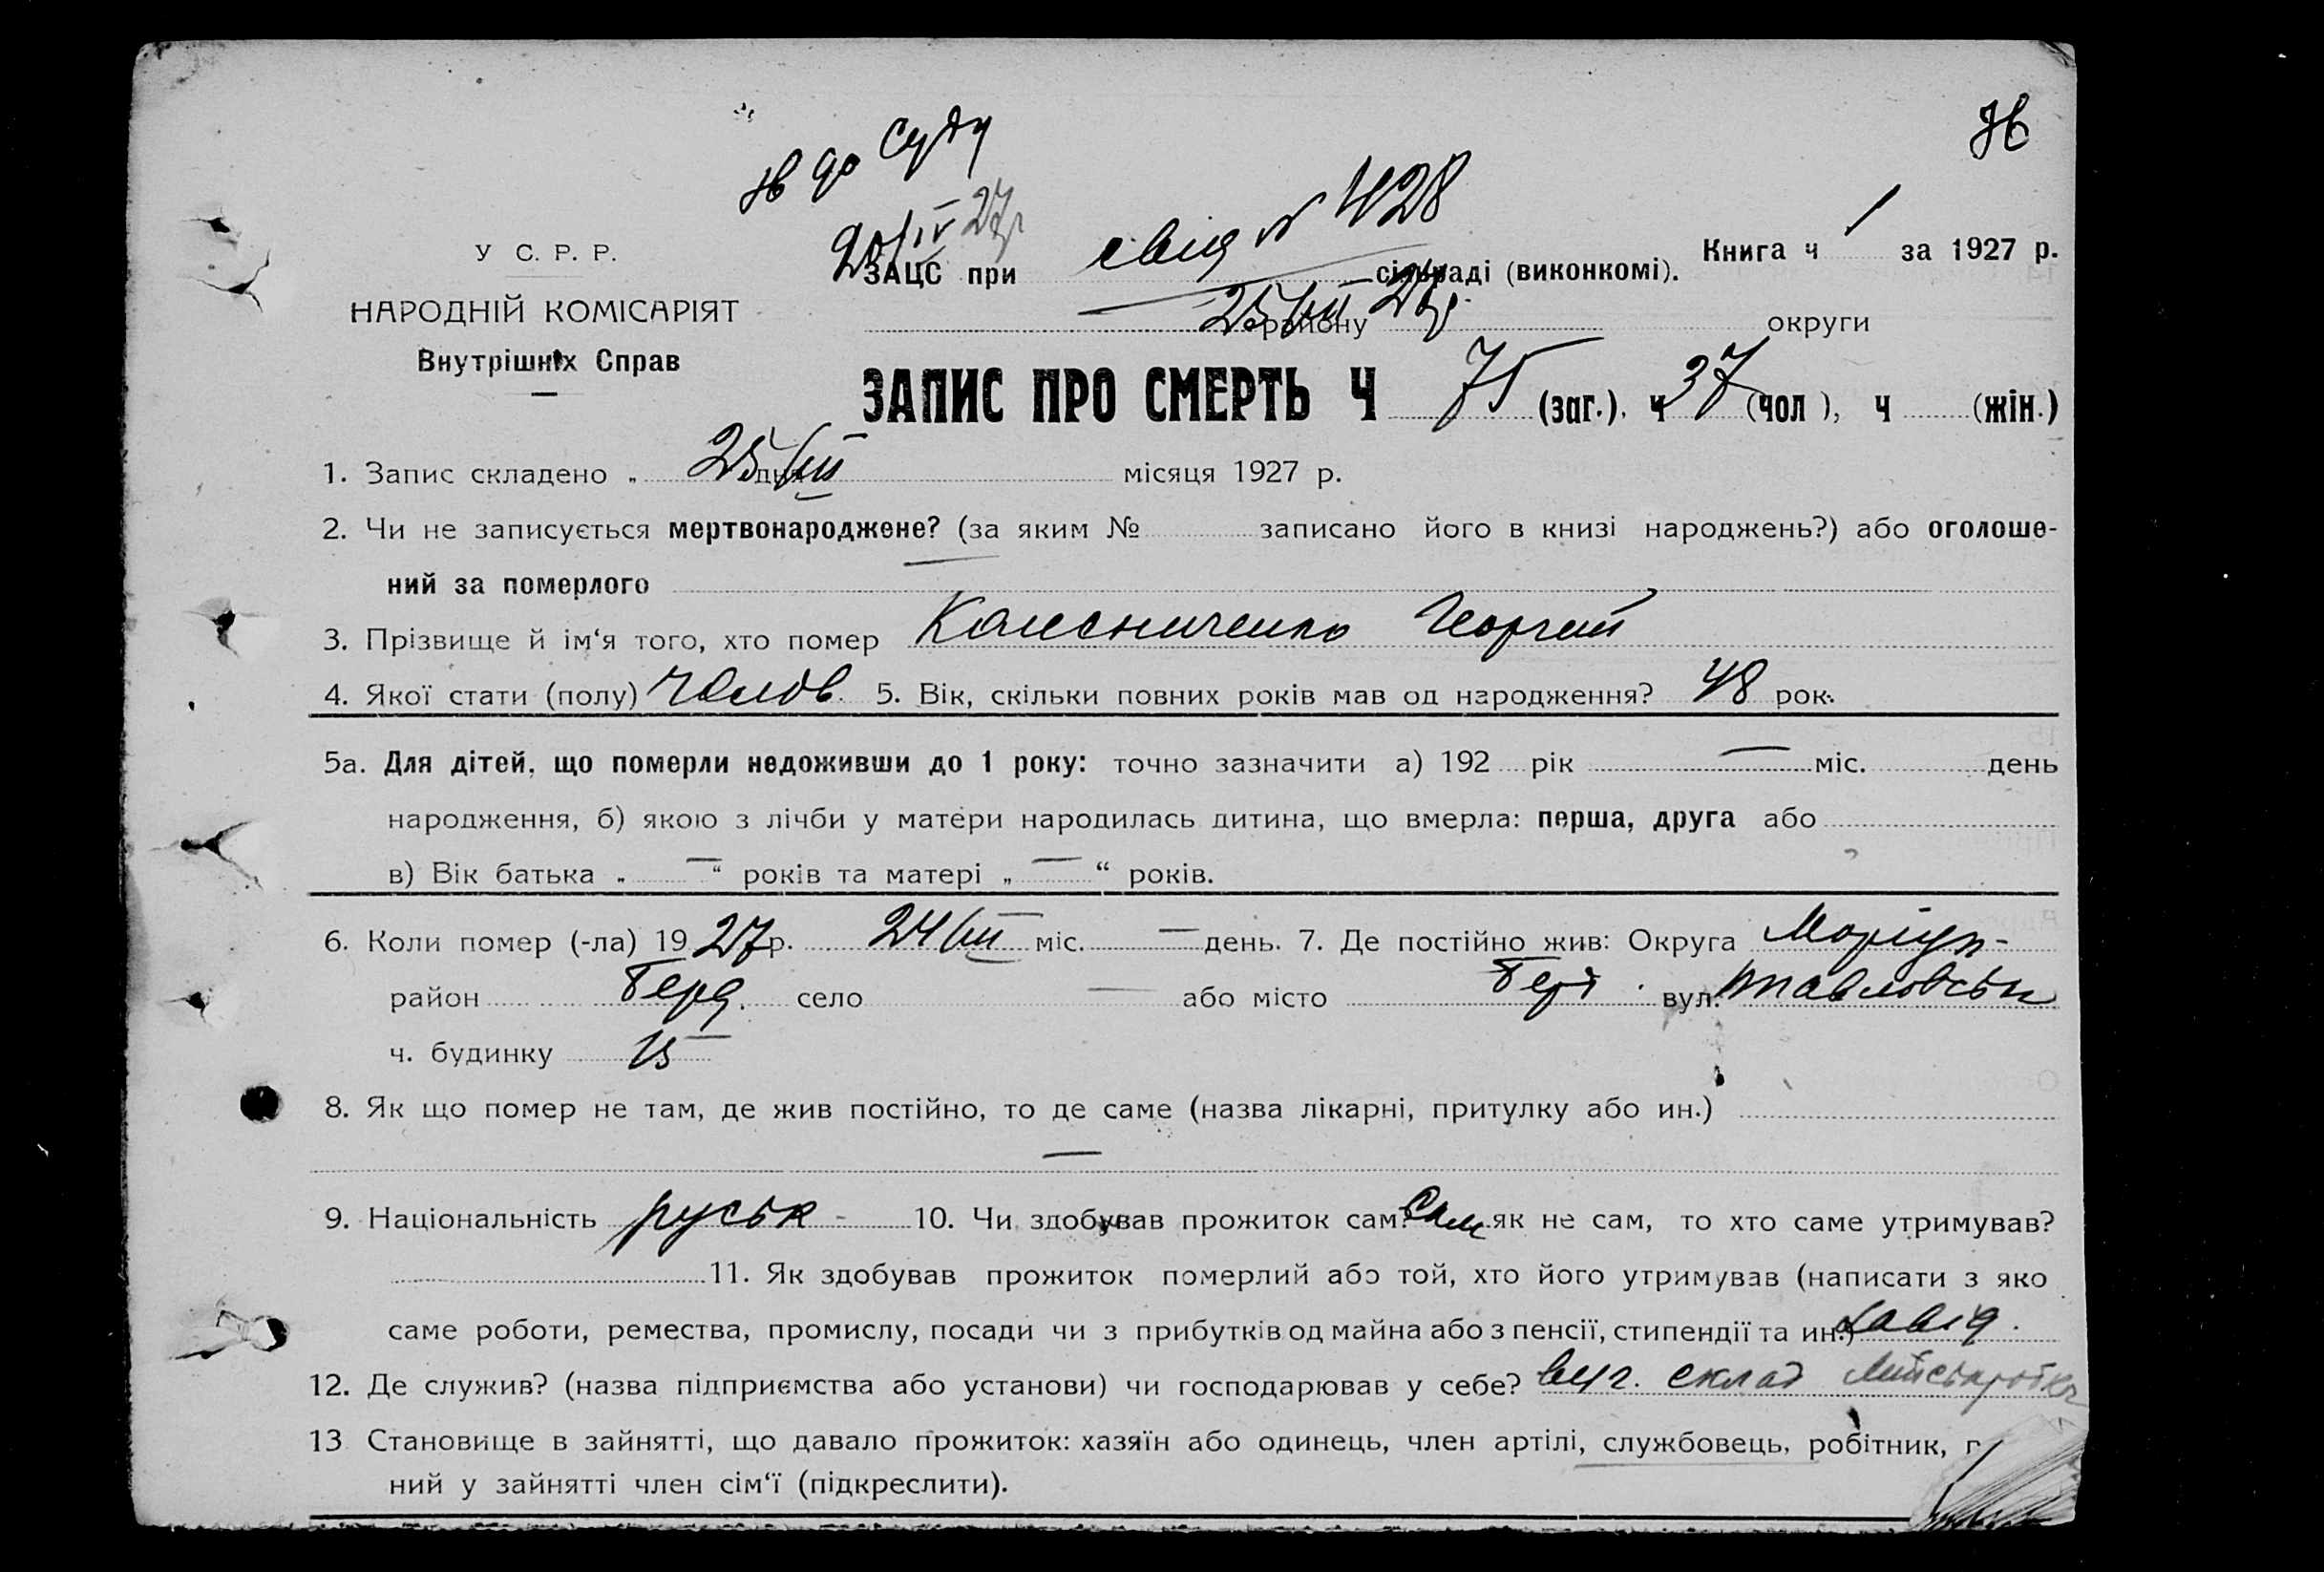 Ж
Ж до суду
20/IV 27р
свід № 428
У С. Р. Р.
ЗАЦС при сільраді (виконкомі). Книга ч 1 за 1927 р.
25/III 27р.
НАРОДНІЙ КОМІСАРІЯТ
району округи
Внутрішніх Справ
ЗАПИС ПРО СМЕРТЬ Ч 75 (заг.), ч 37 (чол), ч (жін.)
1. Запис складено „ 25/III дня місяця 1927 р.
2. Чи не записується мертвонароджене? (за яким № записано його в книзі народжень?) або оголоше-
ний за померлого —
3. Прізвище й ім‘я того, хто помер Колесниченко Георгий
4. Якої стати (полу) чолов. 5. Вік, скільки повних років мав од народження? 48 рок.
5а. Для дітей, що померли недоживши до 1 року: точно зазначити а) 192 рік — міс. день
народження, б) якою з лічби у матери народилась дитина, що вмерла: перша, друга або
в) Вік батька „ — “ років та матері „ — “ років.
6. Коли помер (-ла) 1927 р. 24/III міс. — день. 7. Де постійно жив: Округа Моріуп-
район Берд. село — або місто Берд. вул.
ч. будинку 15
8. Як що помер не там, де жив постійно, то де саме (назва лікарні, притулку або ин.)
—
9. Національність руськ - 10. Чи здобував прожиток сам? Сам як не сам, то хто саме утримував?
11. Як здобував прожиток померлий або той, хто його утримував (написати з яко
саме роботи, ремества, промислу, посади чи з прибутків од майна або з пенсії, стипендії та ин.) Завід.
12. Де служив? (назва підприємства або установи) чи господарював у себе? вуг. склад
13 Становище в зайнятті, що давало прожиток: хазяїн або одинець, член артілі, службовець, робітник, г
ний у зайнятті член сім‘ї (підкреслити).